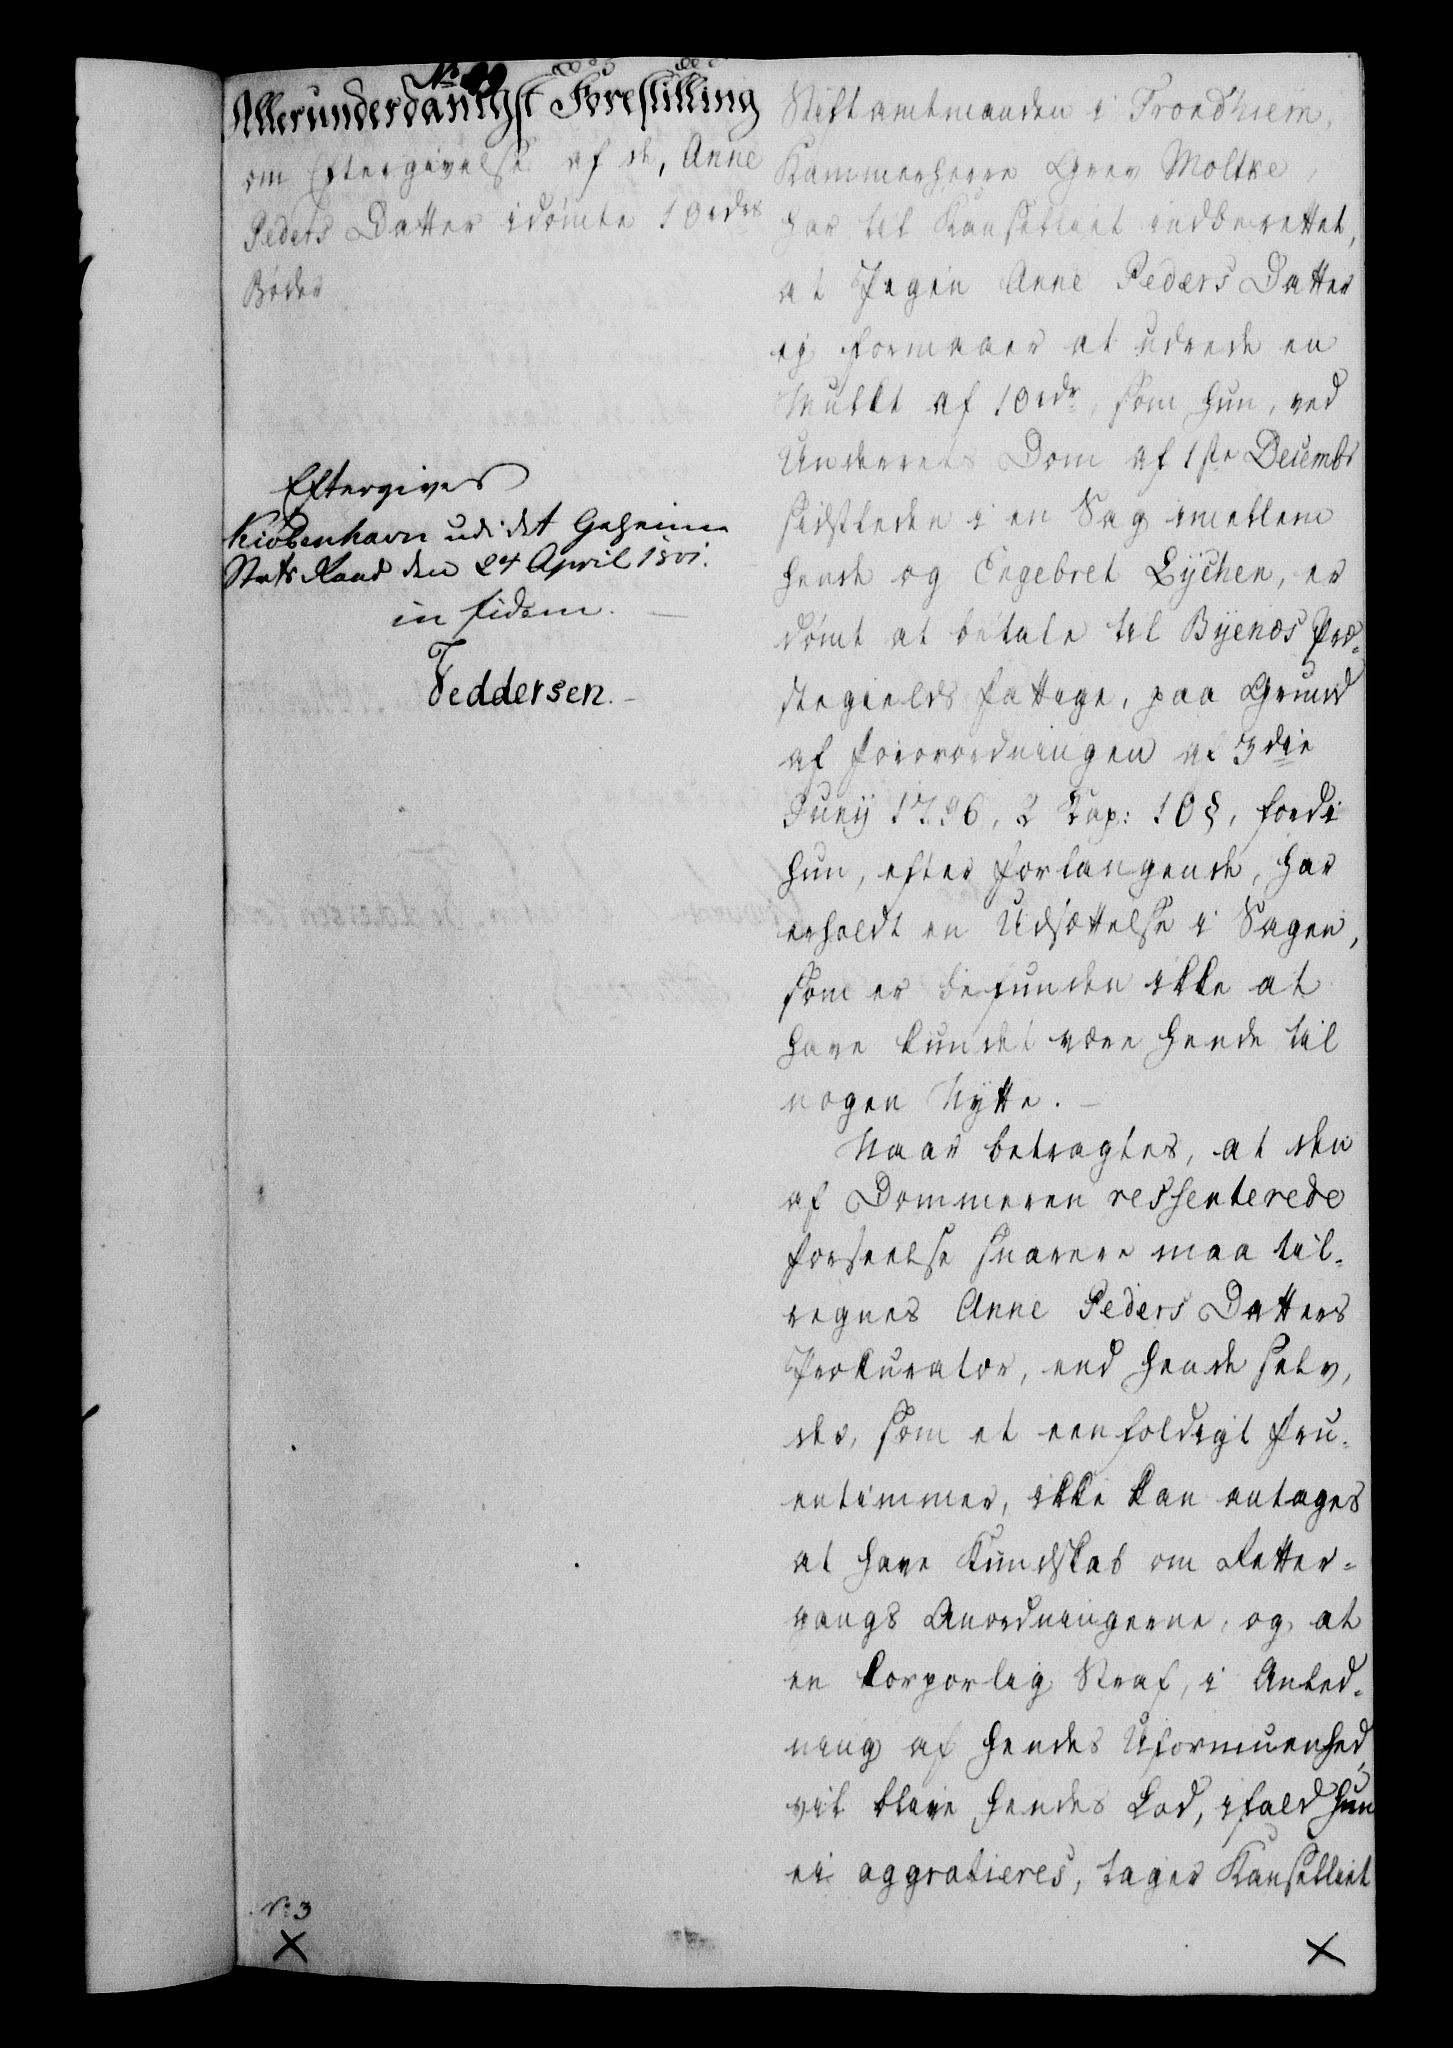 No 99
Allerunderdanigst Forestilling
om Eftergivelse af de, Anne
Peders Datter idømte 10 rdrs
Bøder
Eftergives
Kiøbenhavn udi det Geheime
Stats Raad den 24 April 1801.
in fidem.
Feddersen.
Stiftamtmanden i Trondhiem,
Kammerherre Grev Moltke,
har til Kanselliet indberettet,
at Pigen Anne Peders Datter
ej formaaer at udrede en
Mulkt af 10 rdr, som hun, ved
Underrets Dom af 1ste Decembr
sidstleden i en Sag imellem
hende og Engebret Lychen, er
dømt at betale til Byenæs Præ-
stegields Fattige, paa Grund
af Forordningen af 3die
Junij 1796, 2 Kap: 10 §, fordi
hun, efter Forlangende, har
erholdt en Udsættelse i Sagen,
som er befunden ikke at
have kundet være hende til
nogen Nytte.
Naar betragtes, at den
af Dommeren ressenterede
Forseelse snarere maa til-
regnes Anne Peders Datters
Prokurator, end hende selv,
der, som et eenfoldigt Fru-
entimmer, ikke kan antages
at have Kundskab om Retter-
gangs Anordningerne, og at
en korporlig Straf, i Anled-
ning af hendes Uformuenhed,
vil blive hendes Lod, ifald hun
ei aggratieres, tager Kanselliet
No 3